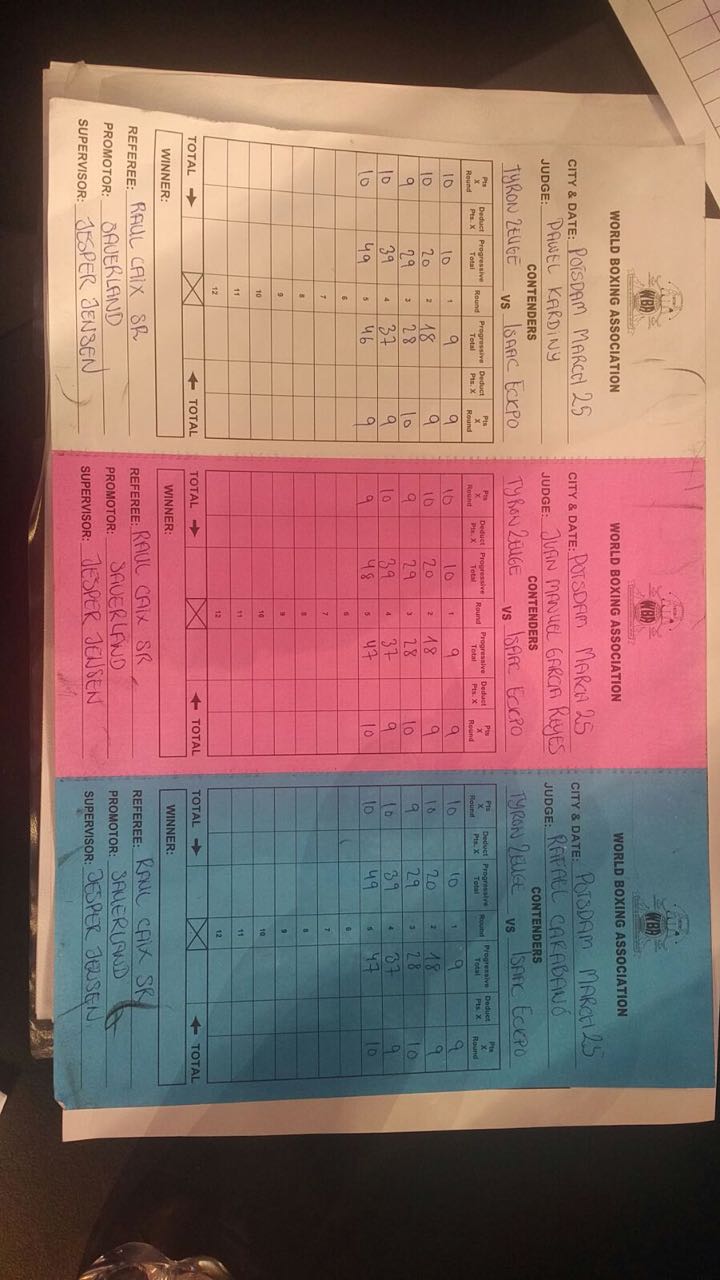 WBA
WORLD BOXING ASSOCIATION
CITY & DATE: POTSDAM MARCH 25
JUDGE: PAWEL KARDINY
CONTENDERS
TYRON ZEUGE VS ISAAC ECKPO
Pts X Round Deduct Pts. X Progressive Total Round Progressive Total Deduct Pts. X Pts X Round
10 10 1 9 9
10 20 2 18 9
9 29 3 28 10
10 39 4 37 9
10 49 5 46 9
6
7
8
9
10
11
12
TOTAL → ← TOTAL
WINNER:
REFEREE: RAUL CAIX SR
PROMOTOR: SAUERLAND
SUPERVISOR: JESPER JENSEN
WBA
WORLD BOXING ASSOCIATION
CITY & DATE: POTSDAM MARCH 25
JUDGE: JUAN MANUEL GARCIA REYES
CONTENDERS
TYRON ZEUGE VS ISAAC ECKPO
Pts X Round Deduct Pts. X Progressive Total Round Progressive Total Deduct Pts. X Pts X Round
10 10 1 9 9
10 20 2 18 9
9 29 3 28 10
10 39 4 37 9
9 48 5 47 10
6
7
8
9
10
11
12
TOTAL → ← TOTAL
WINNER:
REFEREE: RAUL CAIX SR
PROMOTOR: SAUERLAND
SUPERVISOR: JESPER JENSEN
WBA
WORLD BOXING ASSOCIATION
CITY & DATE: POTSDAM MARCH 25
JUDGE: RAFAEL CARABANO
CONTENDERS
TYRON ZEUGE VS ISAAC ECKPO
Pts X Round Deduct Pts. X Progressive Total Round Progressive Total Deduct Pts. X Pts X Round
10 10 1 9 9
10 20 2 18 9
9 29 3 28 10
10 39 4 37 9
10 49 5 47 10
6
7
8
9
10
11
12
TOTAL → ← TOTAL
WINNER:
REFEREE: RAUL CAIX SR
PROMOTOR: SAUERLAND
SUPERVISOR: JESPER JENSEN